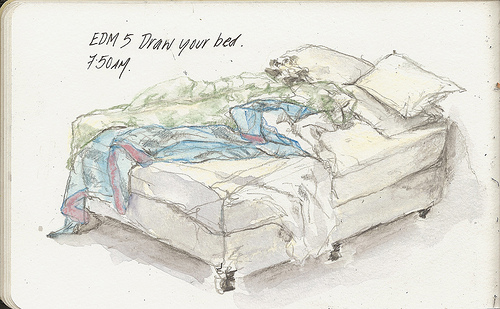 EDM 5 Draw your bed.
7:50AM.